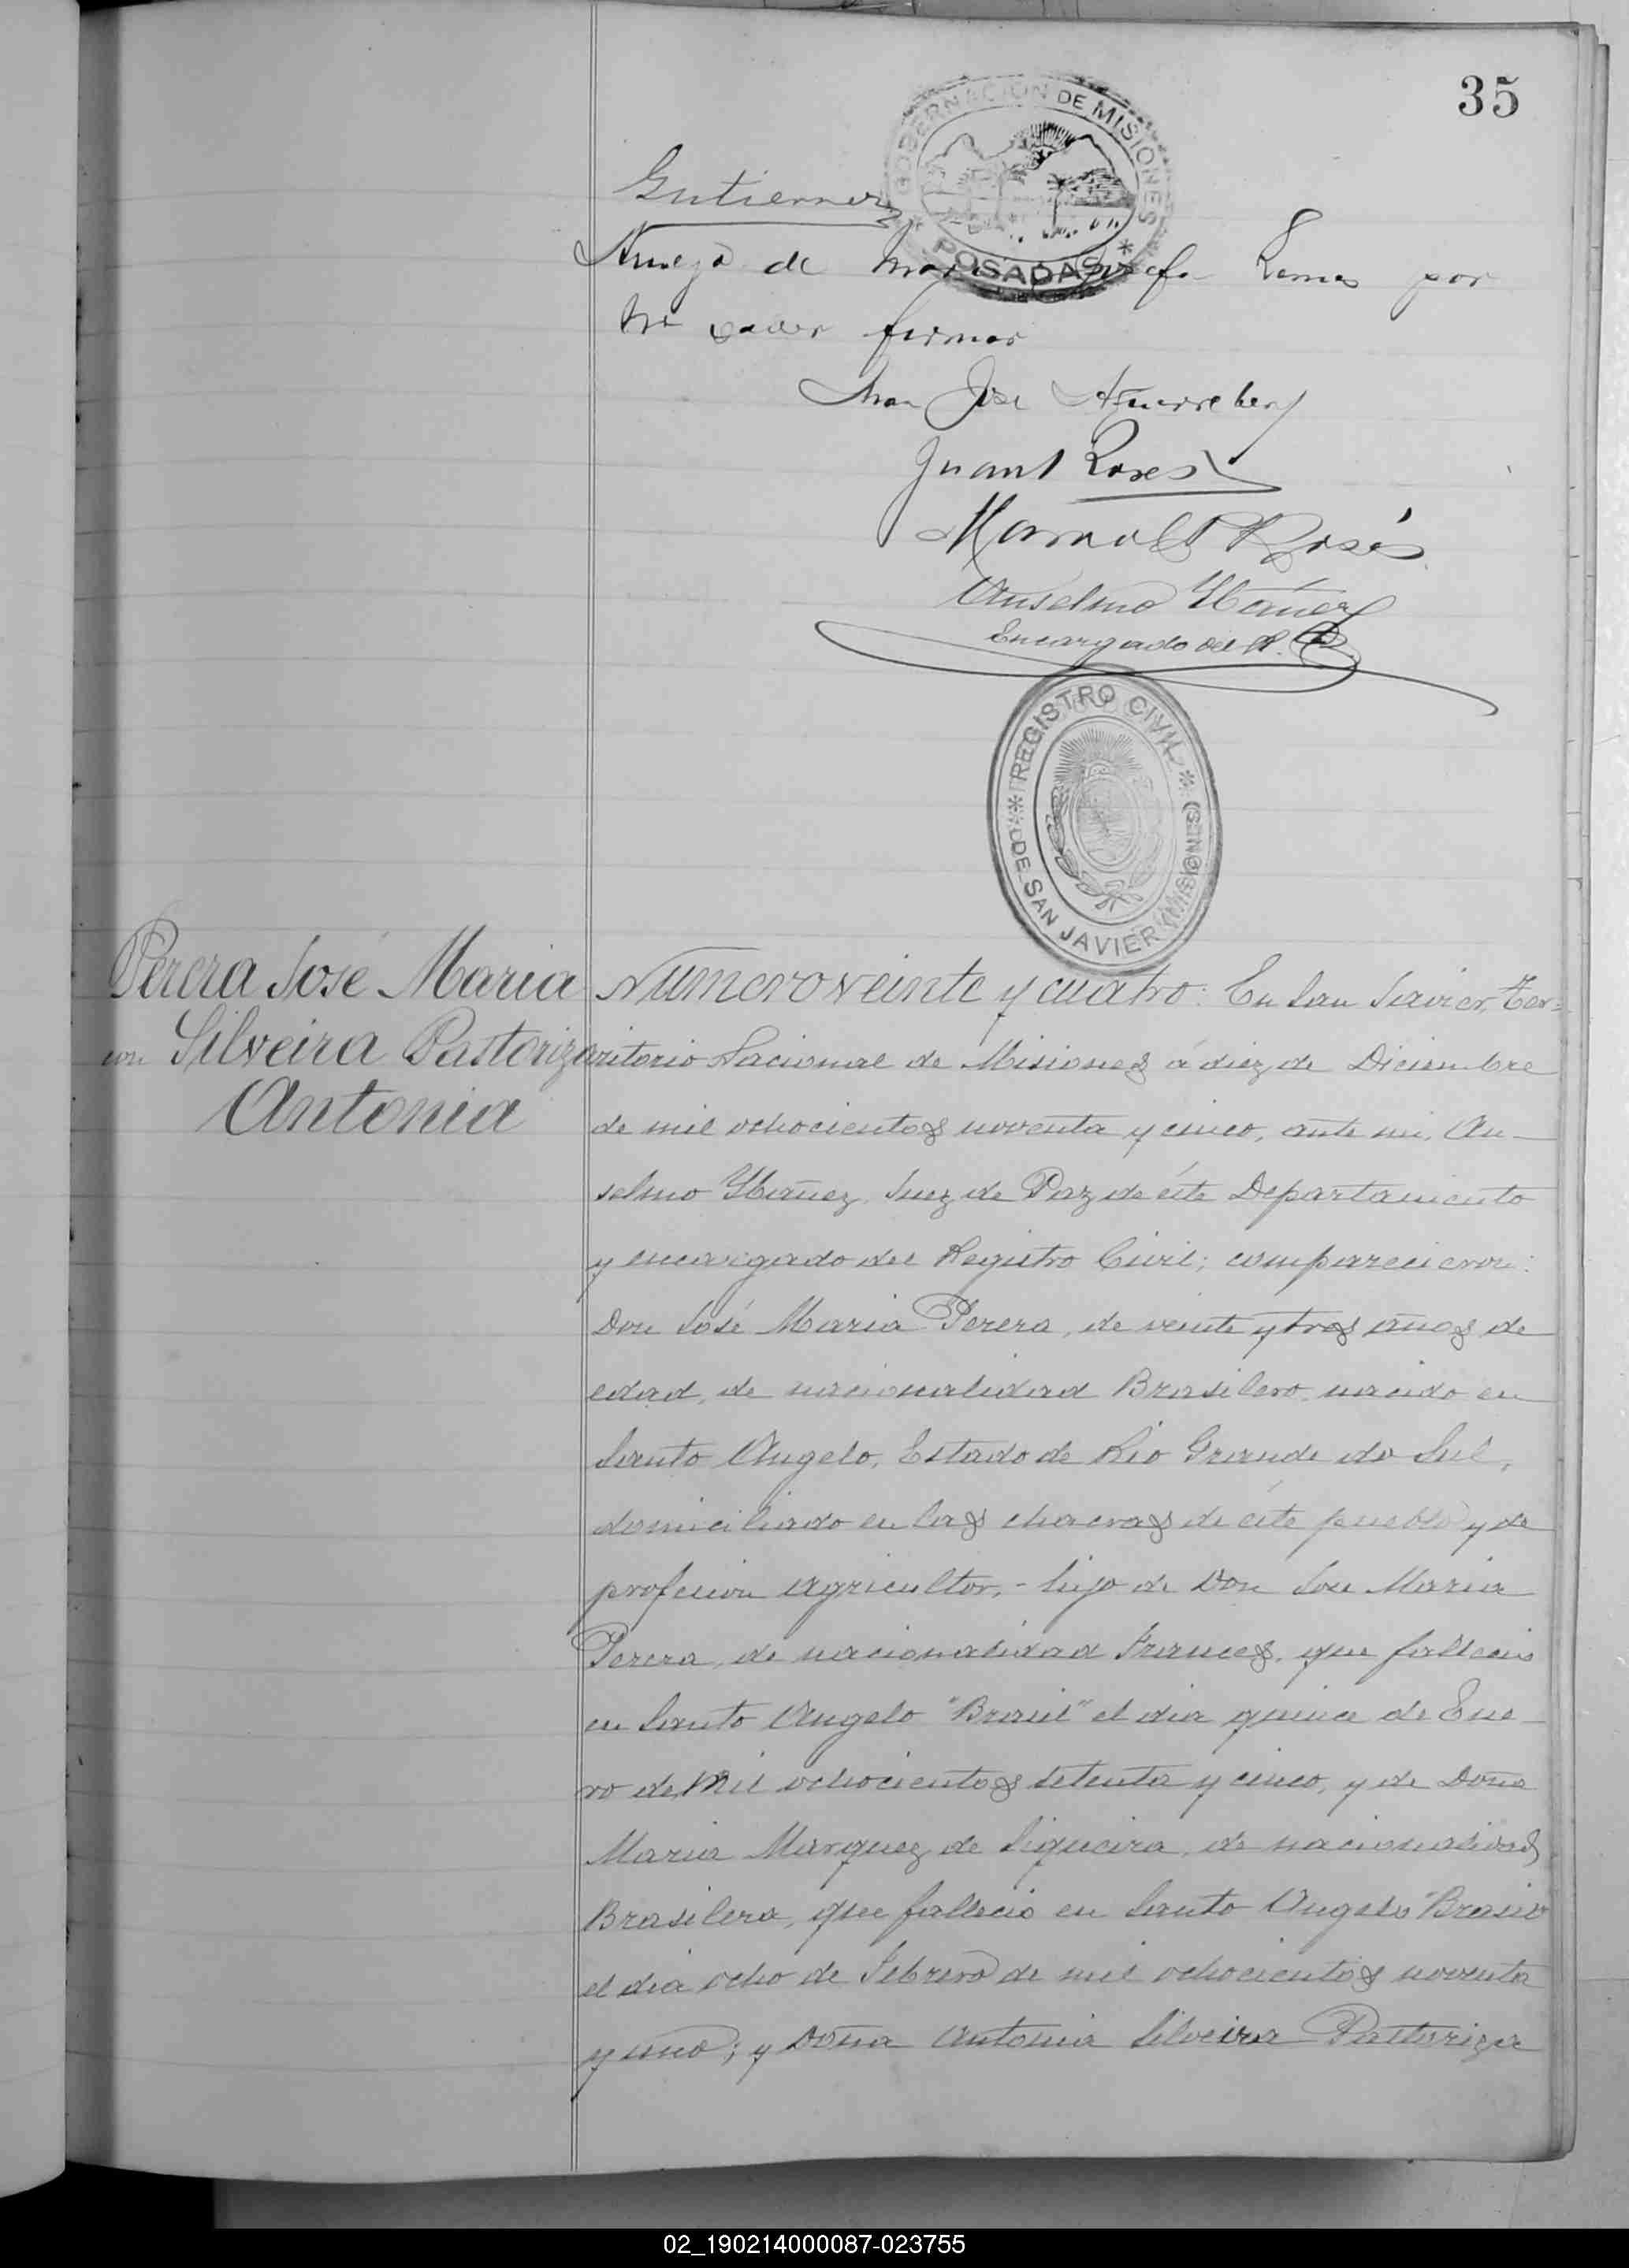 35
GOBERNACION DE MISIONES
* POSADAS *
Gutierrez
Aruego de Maria Josefa Lemes por
no saver firmar
Juan José
Juan P Roses
Manuel P Rosés
Anselmo Ybañez
Encargado del R. C.
REGISTRO CIVIL
DE SAN JAVIER (MISIONES)
Perera José Maria
con Silveira Pastoriza
Antonia
Número veinte y cuatro: En San Javier, Ter=
ritorio Nacional de Misiones á diez de Diciembre
de mil ochocientos noventa y cinco, ante mi, An-
selmo Ybañez, Juez de Paz de éste Departamento
y encargado del Registro Civil; comparecieron:
Don José Maria Perera, de veinte y tres años de
edad, de nacionalidad Brasilero, nacido en
Santo Angelo, Estado de Rio Grande do Sul,
domiciliado en las chacras de éste pueblo y de
profecion agricultor, - hijo de Don José Maria
Perera, de nacionalidad Frances, que fallecio
en Santo Angelo "Brasil" el dia quince de Ene
ro de Mil ochocientos setenta y cinco, y de Doña
Maria Marquez de Siqueira, de nacionalidad
Brasilera, que fallecio en Santo Angelo "Brasil"
el dia ocho de Febrero de mil ochocientos noventa
y uno; y Doña Antonia Silveira Pastoriza
02_190214000087-023755